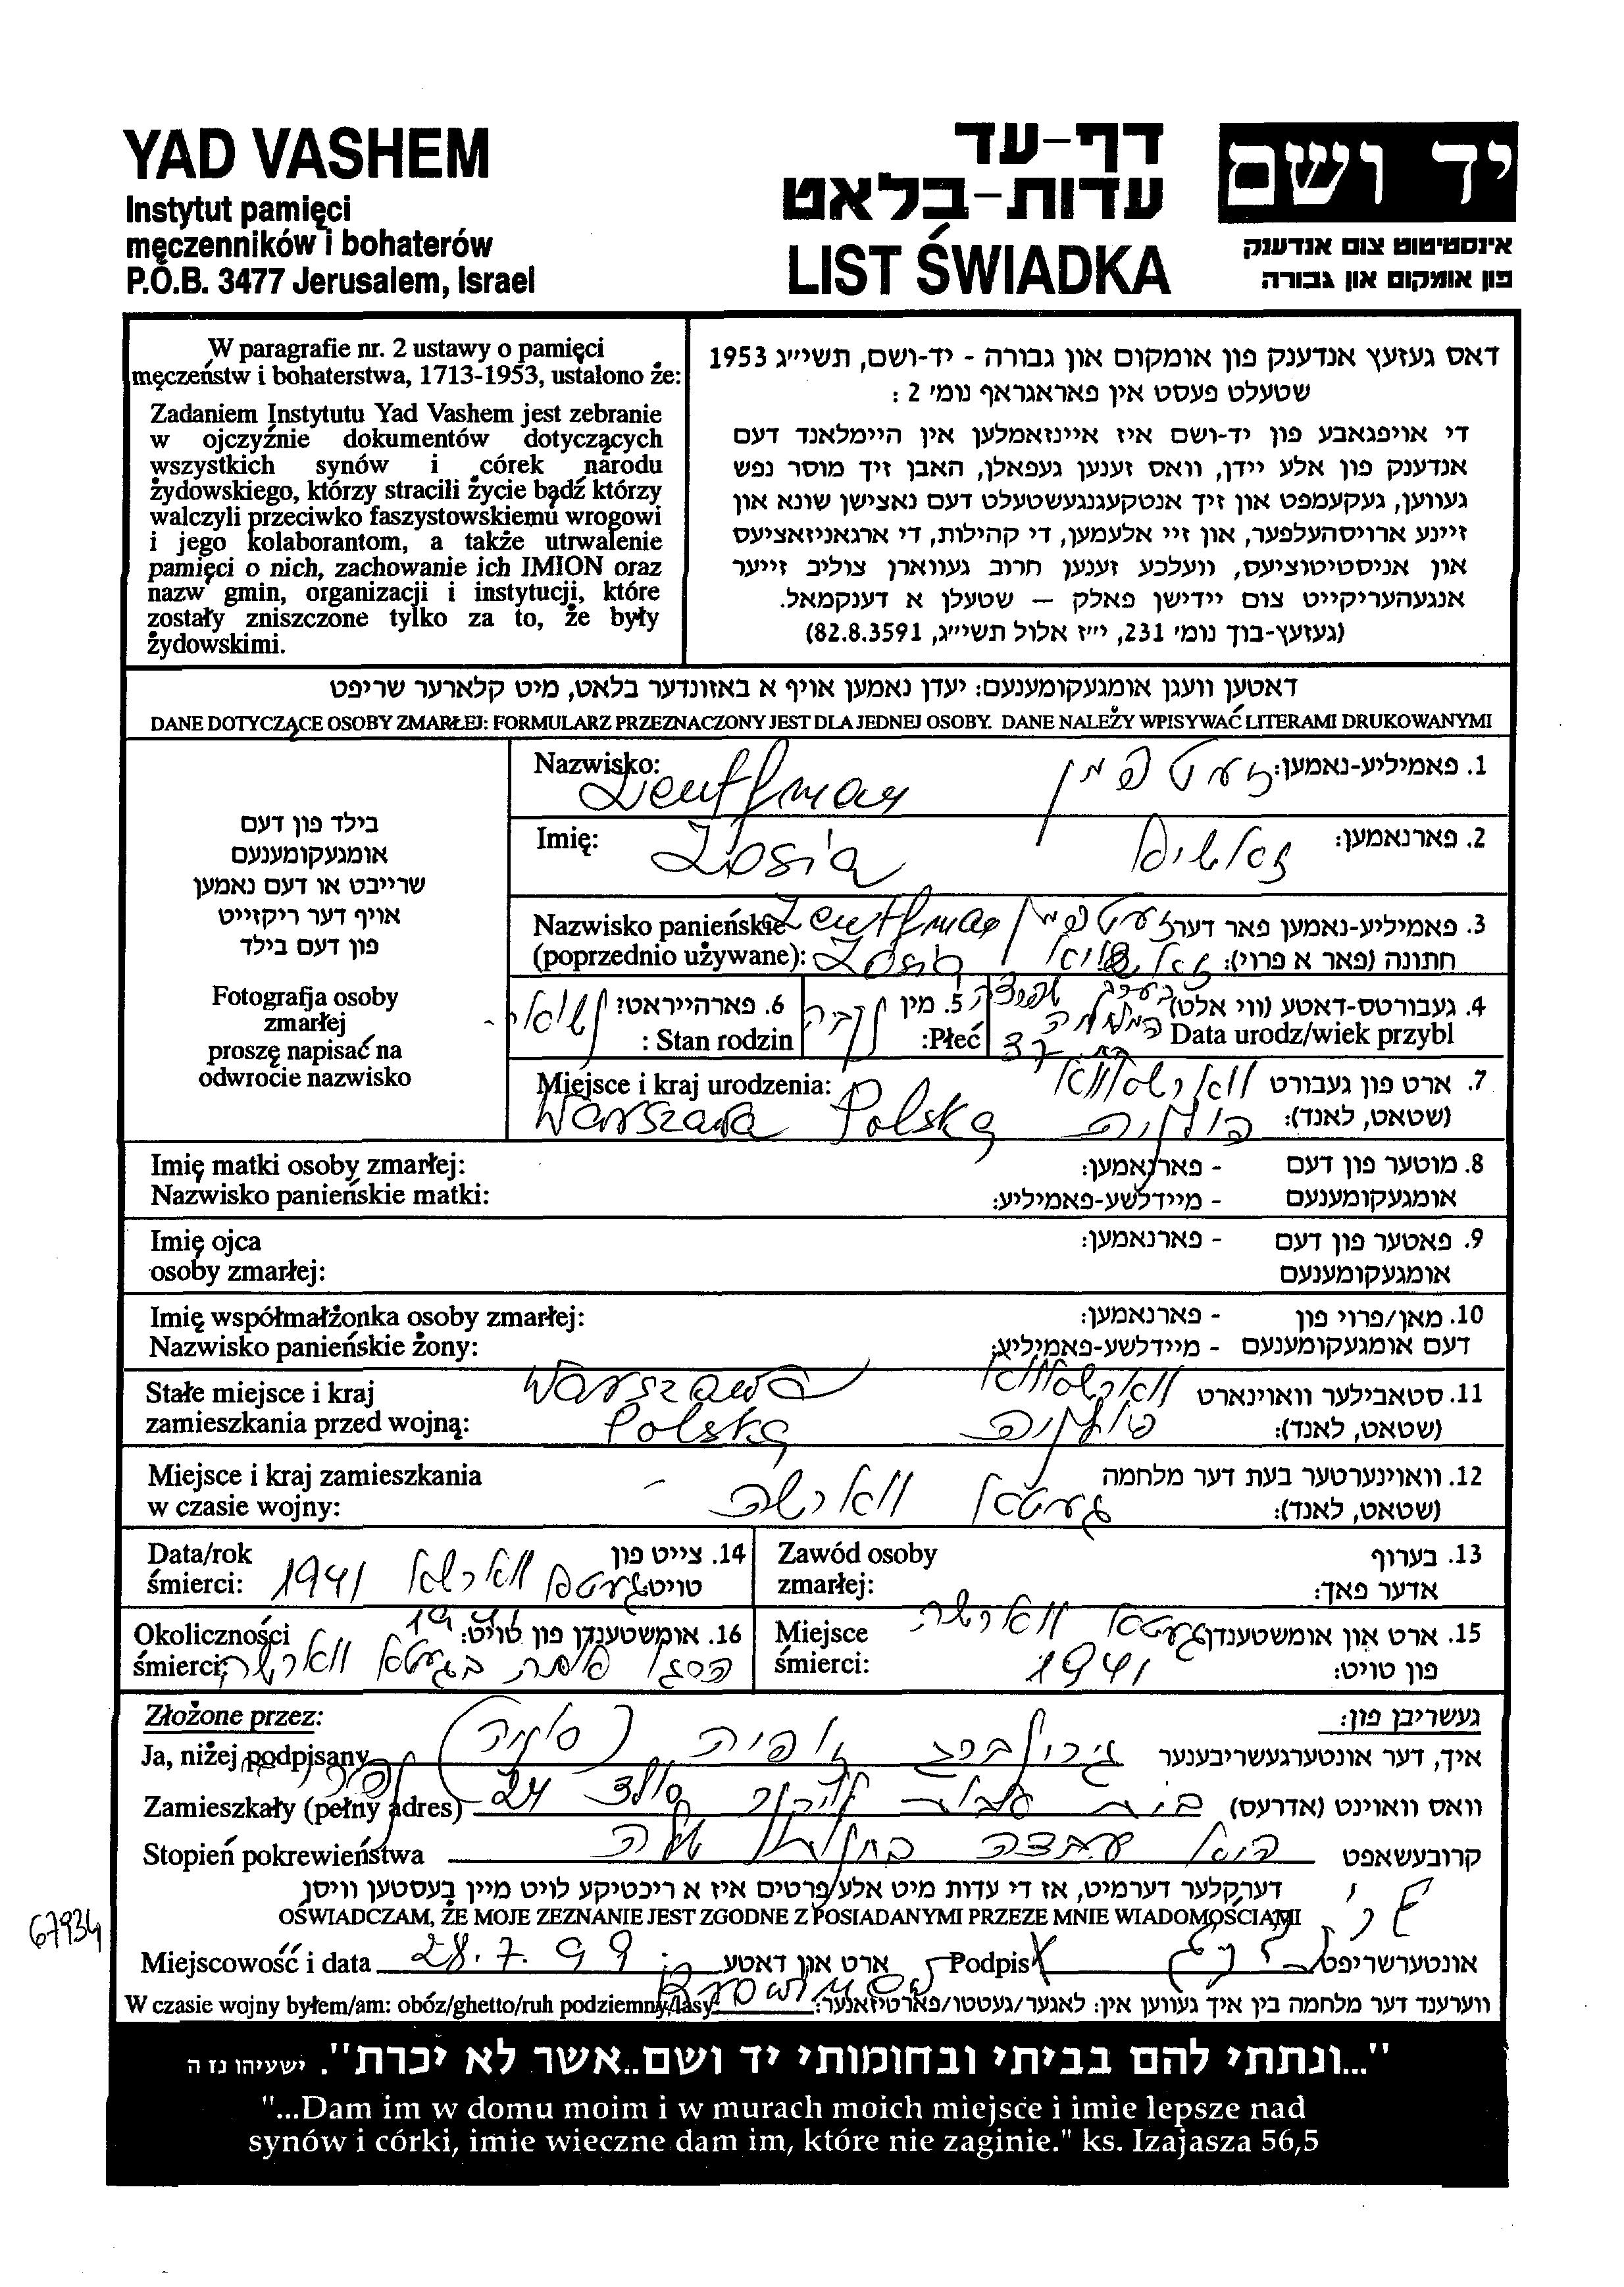 YAD VASHEM
Instytut pamięci
męczenników i bohaterów
P.O.B. 3477 Jerusalem, Israel
דף-עד
עדות-בלאט
LIST ŚWIADKA
יד ושם
אינסטיטוט צום אנדענק
פון אומקום און גבורה
W paragrafie nr. 2 ustawy o pamięci
męczeństw i bohaterstwa, 1713-1953, ustalono że:
Zadaniem Instytutu Yad Vashem jest zebranie
w ojczyźnie dokumentów dotyczących
wszystkich synów i córek narodu
żydowskiego, którzy stracili życie bądź którzy
walczyli przeciwko faszystowskiemu wrogowi
i jego kolaborantom, a także utrwalenie
pamięci o nich, zachowanie ich IMION oraz
nazw gmin, organizacji i instytucji, które
zostały zniszczone tylko za to, że były
żydowskimi.
דאס געזעץ אנדענק פון אומקום און גבורה - יד-ושם, תשי״ג 1953
שטעלט פעסט אין פאראגראף נומ׳ 2 :
די אויפגאבע פון יד-ושם איז איינזאמלען אין היימלאנד דעם
אנדענק פון אלע יידן, וואס זענען געפאלן, האבן זיך מוסר נפש
געווען, געקעמפט און זיך אנטקעגנגעשטעלט דעם נאצישן שונא און
זיינע ארויסהעלפער, און זיי אלעמען, די קהילות, די ארגאניזאציעס
און אניסטיטוציעס, וועלכע זענען חרוב געווארן צוליב זייער
אנגעהעריקייט צום יידישן פאלק — שטעלן א דענקמאל.
(געזעץ-בוך נומ׳ 231, י״ז אלול תשי״ג, 82.8.3591)
דאטען וועגן אומגעקומענעם: יעדן נאמען אויף א באזונדער בלאט, מיט קלארער שריפט
DANE DOTYCZĄCE OSOBY ZMARŁEJ: FORMULARZ PRZEZNACZONY JEST DLA JEDNEJ OSOBY. DANE NALEŻY WPISYWAĆ LITERAMI DRUKOWANYMI
בילד פון דעם
אומגעקומענעם
שרייבט או דעם נאמען
אויף דער ריקזייט
פון דעם בילד
Fotografja osoby
zmarłej
proszę napisać na
odwrocie nazwisko
Nazwisko: 1. פאמיליע-נאמען:
Imię: Zosia 2. פארנאמען:
Nazwisko panieńskie 3. פאמיליע-נאמען פאר דער
(poprzednio używane): Zosia חתונה (פאר א פרוי):
4. געבורטס-דאטע (ווי אלט)
Data urodz/wiek przybl 37
5. מין נקבה
Płeć:
6. פארהייראט? נשואה
Stan rodzin :
Miejsce i kraj urodzenia: 7. ארט פון געבורט
Warszawa Polska (שטאט, לאנד): פולניה
Imię matki osoby zmarłej: 8. מוטער פון דעם - פארנאמען:
Nazwisko panieńskie matki: אומגעקומענעם - מיידלשע-פאמיליע:
Imię ojca 9. פאטער פון דעם - פארנאמען:
osoby zmarłej: אומגעקומענעם
Imię współmałżonka osoby zmarłej: 10. מאן/פרוי פון - פארנאמען:
Nazwisko panieńskie żony: דעם אומגעקומענעם - מיידלשע-פאמיליע:
Stałe miejsce i kraj Warszawa 11. סטאבילער וואוינארט
zamieszkania przed wojną: Polska (שטאט, לאנד): פולניה
Miejsce i kraj zamieszkania 12. וואוינערטער בעת דער מלחמה
w czasie wojny: (שטאט, לאנד): גטו וארשה
Data/rok 14. צייט פון
śmierci: 1941 טויט:
Zawód osoby 13. בערוף
zmarłej: אדער פאך:
Okoliczności 16. אומשטענדן פון טויט:
śmierci:
Miejsce 15. ארט און אומשטענדן
śmierci: 1941 פון טויט:
Złożone przez: געשריבן פון:
Ja, niżej podpisany איך, דער אונטערגעשריבענער
Zamieszkały (pełny adres) 24 וואס וואוינט (אדרעס)
Stopień pokrewieństwa קרובעשאפט
דערקלער דערמיט, אז די עדות מיט אלע פרטים איז א ריכטיקע לויט מיין בעסטען וויסן
OŚWIADCZAM, ŻE MOJE ZEZNANIE JEST ZGODNE Z POSIADANYMI PRZEZE MNIE WIADOMOŚCIAMI
67934
Miejscowość i data 28.7.99 ארט און דאטע Podpis אונטערשריפט
W czasie wojny byłem/am: obóz/ghetto/ruh podziemny/lasy: ווערענד דער מלחמה בין איך געווען אין: לאגער/געטטו/פארטיזאנער:
"...ונתתי להם בביתי ובחומותי יד ושם..אשר לא יכרת". ישעיהו נז ה
"...Dam im w domu moim i w murach moich miejsce i imie lepsze nad
synów i córki, imie wieczne dam im, które nie zaginie." ks. Izajasza 56,5